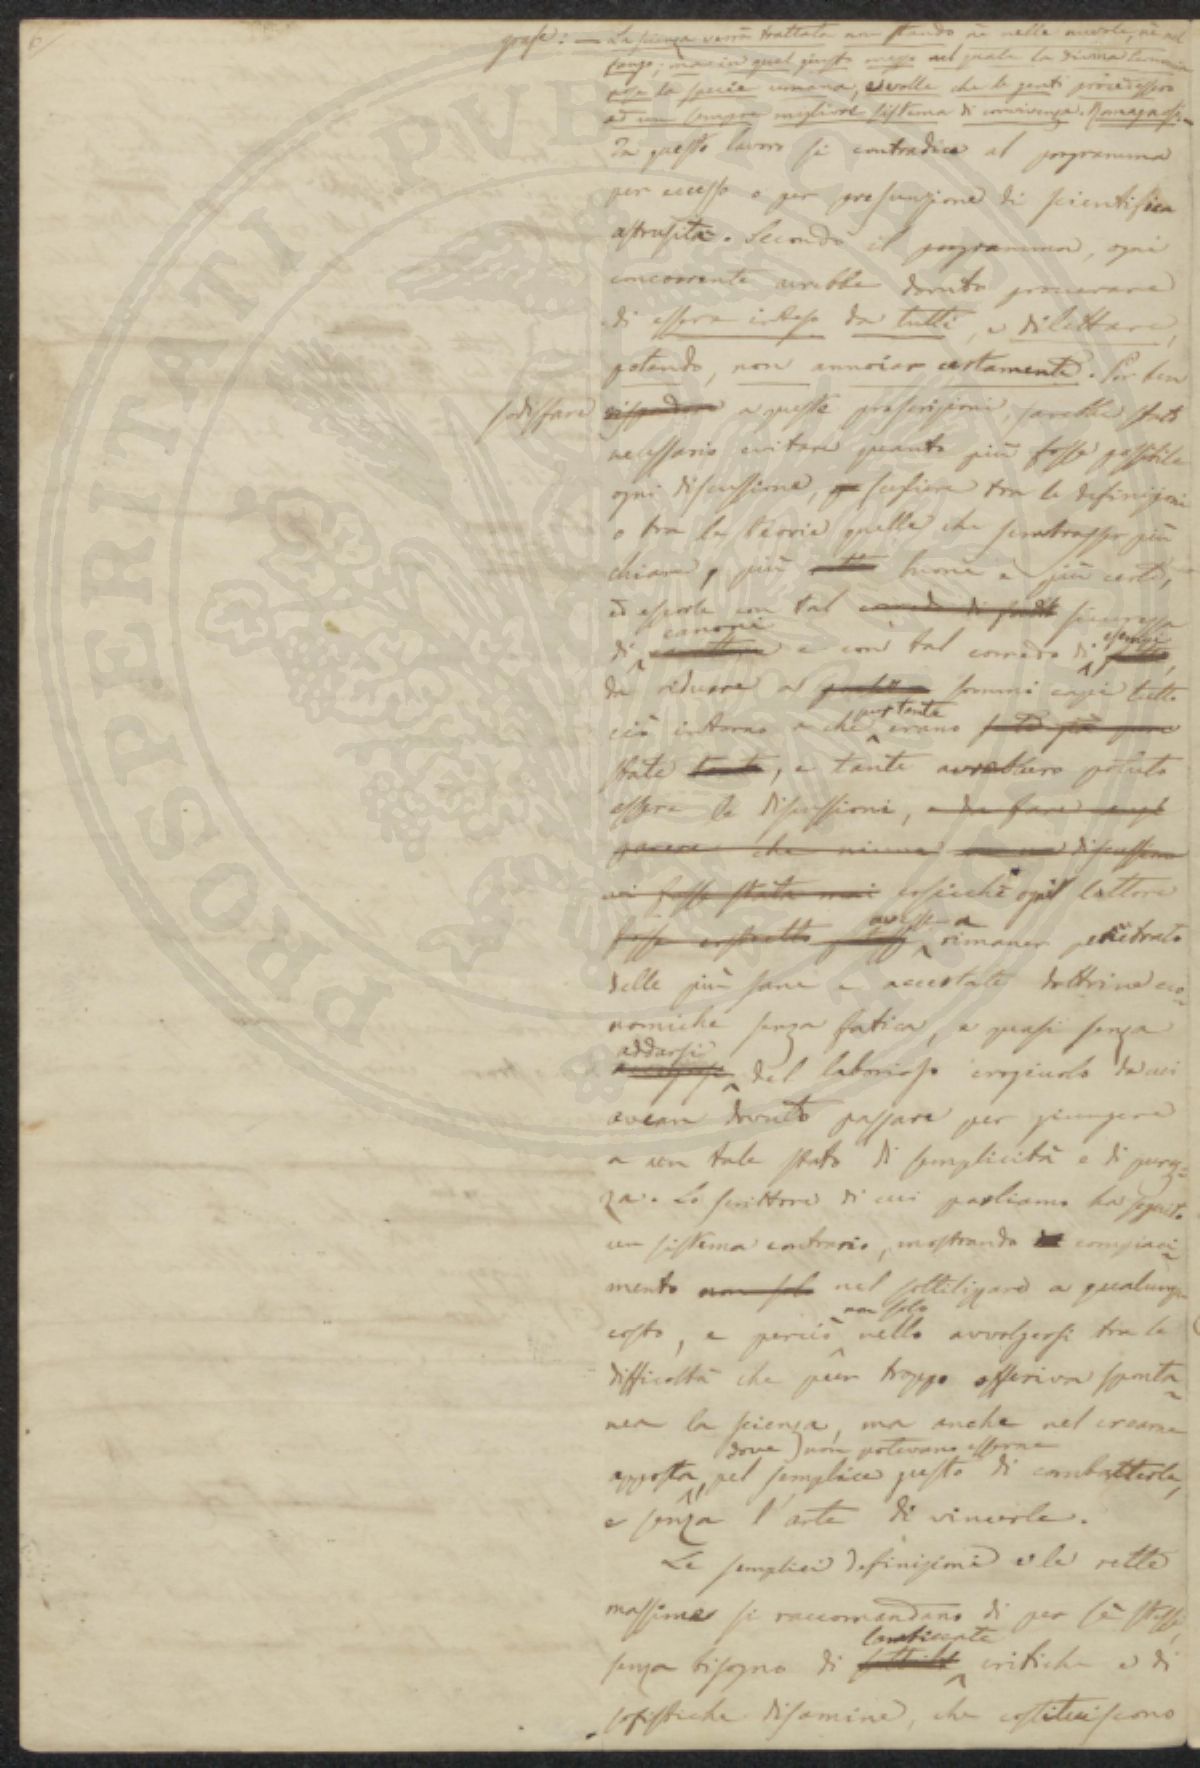 6
grafe: — La scienza verrà trattata non stando nè nelle nuvole, nè nel
fango; ma in quel giusto mezzo nel quale la divina
pose la specie umana, e volle che le genti procedessero
ad un sempre migliore sistema di convivenza. Romagnosi. —
In questo lavoro si contradice al programma
per eccesso o per presunzione di scientifica
astrusità. Secondo il programma, ogni
concorrente avrebbe dovuto procurare
di essere inteso da tutti, e dilettare,
potendo, non annoiar certamente. Per ben
sodisfare rispondere a queste prescrizioni, sarebbe stato
necessario evitare quanto più fosse possibile
ogni discussione, scegliere tra le definizioni
o tra le teorie quelle che sembrassero più
chiare, più buone e più certe,
ed esporle con tal corredo di fatti sicurezza
di canoni e con tal corredo di esempi,
da ridurre a sommi capi tutto
ciò intorno a che pur tante erano
state tante, e tante avrebbero potuto
essere le discussioni, e da fare
parere che niuna discussione
vi fosse stata mai cosicchè ogni lettore
fosse costretto avesse a rimaner penetrato
delle più sane e accertate dottrine eco-
nomiche senza fatica, e quasi senza
addarsi del laborioso crogiuolo da cui
avean dovuto passare per giungere
a un tale stato di semplicità e di purez-
za. Lo scrittore di cui parliamo ha seguito
un sistema contrario, mostrando compiaci-
mento non solo nel sottilizzare a qualunque
costo, e perciò non solo nello avvolgersi tra le
difficoltà che pur troppo offeriva sponta-
nea la scienza, ma anche nel crearne
apposta, dove non potevano esserne pel semplice gusto di combatterle,
e senza l'arte di vincerle.
Le semplici definizioni e le rette
massime si raccomandano di per sè stesse,
senza bisogno di lambiccate critiche e di
sofistiche disamine, che costituiscono